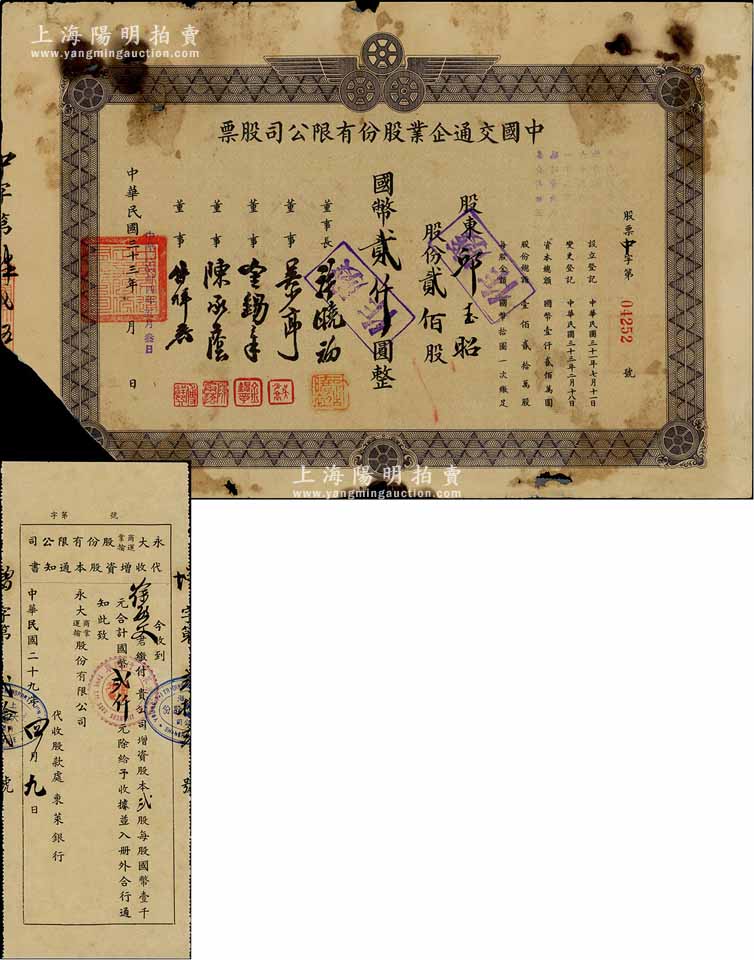 上海陽明拍賣
www.yangmingauction.com
中國交通企業股份有限公司股票
股票中字第04252號
設立登記 中華民國三十一年七月十一日
變更登記 中華民國三十三年二月十八日
資本總額 國幣壹仟貳佰萬圓
股份總額 壹佰貳拾萬股
每股金額 國幣拾圓一次繳足
股東邱玉昭
股份貳佰股
國幣貳仟圓整
董事長
董事
董事
董事 陳
董事
中華民國三十三年 月 日
中字第
上海陽明拍賣
www.yangmingauction.com
字第 號
永大商業運輸股份有限公司
代收增資股本通知書
今收到
徐 文君繳付 貴公司增資股本弍股每股國幣壹千
元合計國幣弍仟元除給予收據並入册外合行通
知此致
永大商業運輸股份有限公司
代收股款處 東萊銀行
中華民國二十九年四月九日
增字第
號